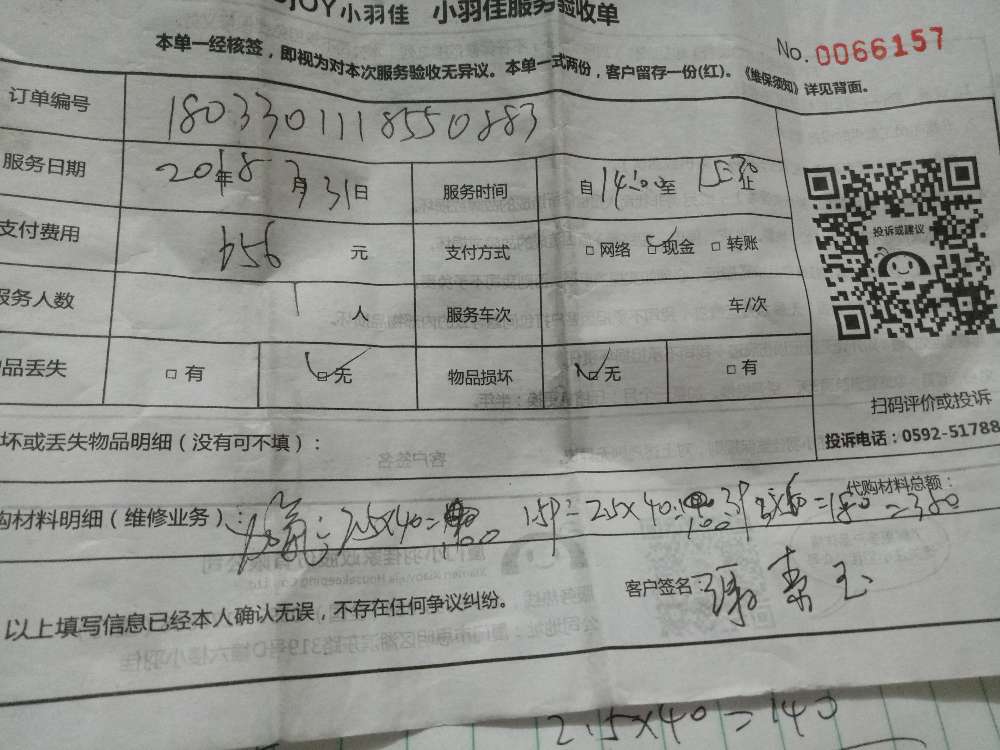 JOY小羽佳 小羽佳服务验收单
本单一经核签，即视为对本次服务验收无异议。本单一式两份，客户留存一份(红)。《维保须知》详见背面。
No. 0066157
订单编号 1803301118550883
服务日期 2018年 月31日 服务时间 自14:00至15:30止
支付费用 656 元 支付方式 □网络 ☑现金 □转账
服务人数 1 人 服务车次 车/次
物品丢失 □有 ☑无 物品损坏 ☑无 □有
投诉或建议
扫码评价或投诉
投诉电话：0592-51788
坏或丢失物品明细（没有可不填）：
代购材料总额：
购材料明细（维修业务）： 2.5×40=100 1.5P=2.5×40=100 3P =180 =380
客户签名：
以上填写信息已经本人确认无误，不存在任何争议纠纷。
2.5×40=140